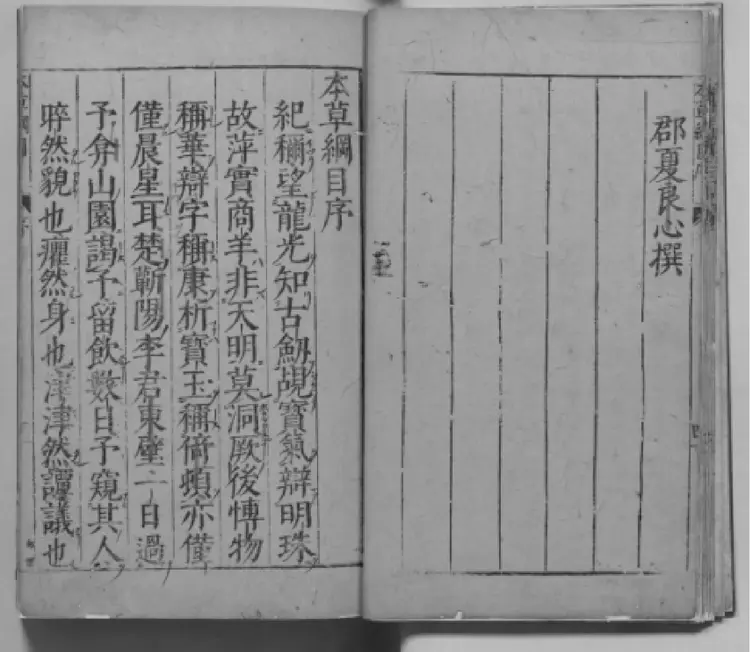 郡夏良心撰
本草綱目序
紀穪望龍光知古劔覘寶氣辯明珠
故萍實商羊非天明莫洞厥後愽物
稱華辯字稱康析寶玉稱倚頓亦僅
僅晨星耳楚蘄陽李君東璧一日過
予弇山園謁予留飲數日予窺其人
睟然貌也癯然身也津津然譚議也